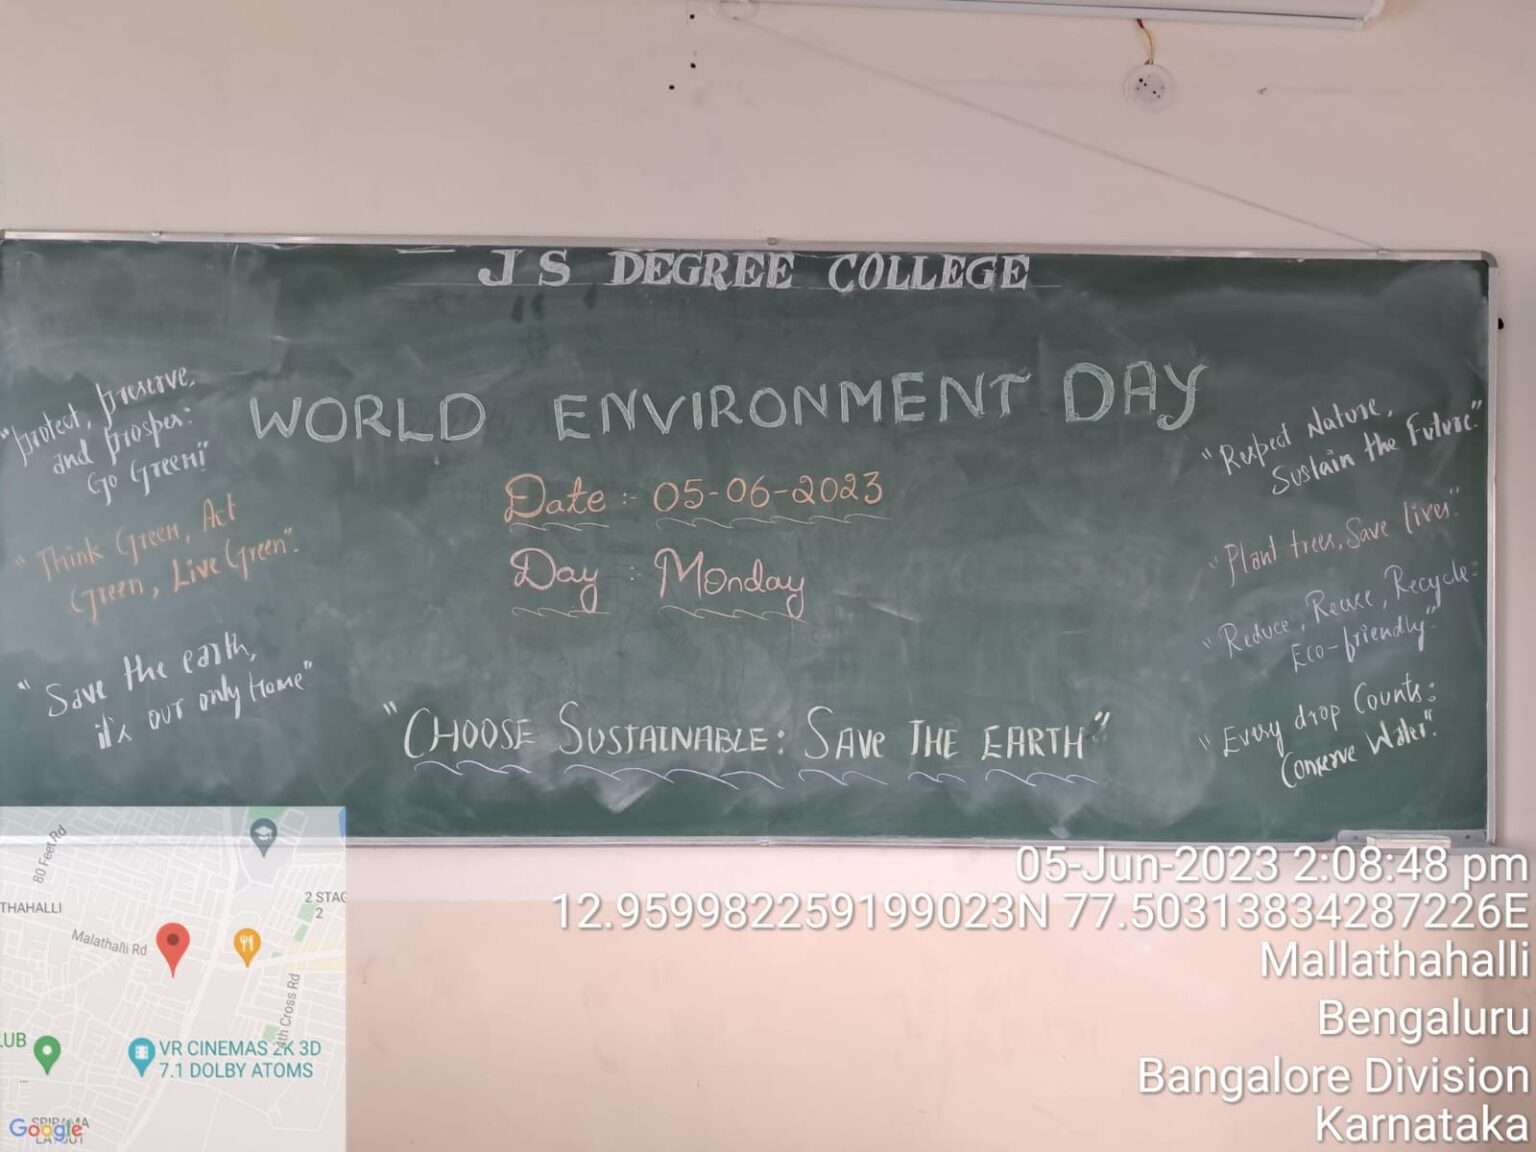 J S DEGREE COLLEGE
WORLD ENVIRONMENT DAY
Date :- 05-06-2023
Day : Monday
"CHOOSE SUSTAINABLE: SAVE THE EARTH"
"Protect, preserve,
and prosper:
Go Green!"
"Think Green, Act
Green, Live Green".
"Save the earth,
it's our only Home"
"Respect Nature,
Sustain the Future."
"Plant trees, Save lives."
"Reduce, Reuse, Recycle:
Eco-friendly"
"Every drop Counts:
Conserve Water".
80 Feet Rd
THAHALLI
2 STAG
2
Malathalli Rd
4th Cross Rd
LUB
VR CINEMAS 2K 3D
7.1 DOLBY ATOMS
Google
05-Jun-2023 2:08:48 pm
12.959982259199023N 77.50313834287226E
Mallathahalli
Bengaluru
Bangalore Division
Karnataka